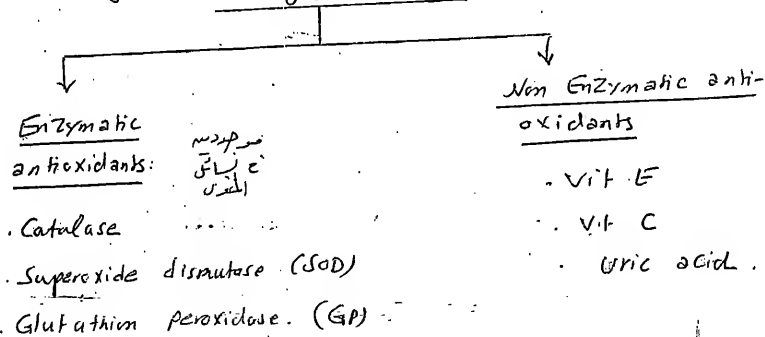 Enzymatic
antioxidants:
موجودين
. Catalase
. Superoxide dismutase (SOD)
. Glutathion peroxidase. (GP)
Non Enzymatic anti-
oxidants
. Vit E
. Vit C
. Uric acid.